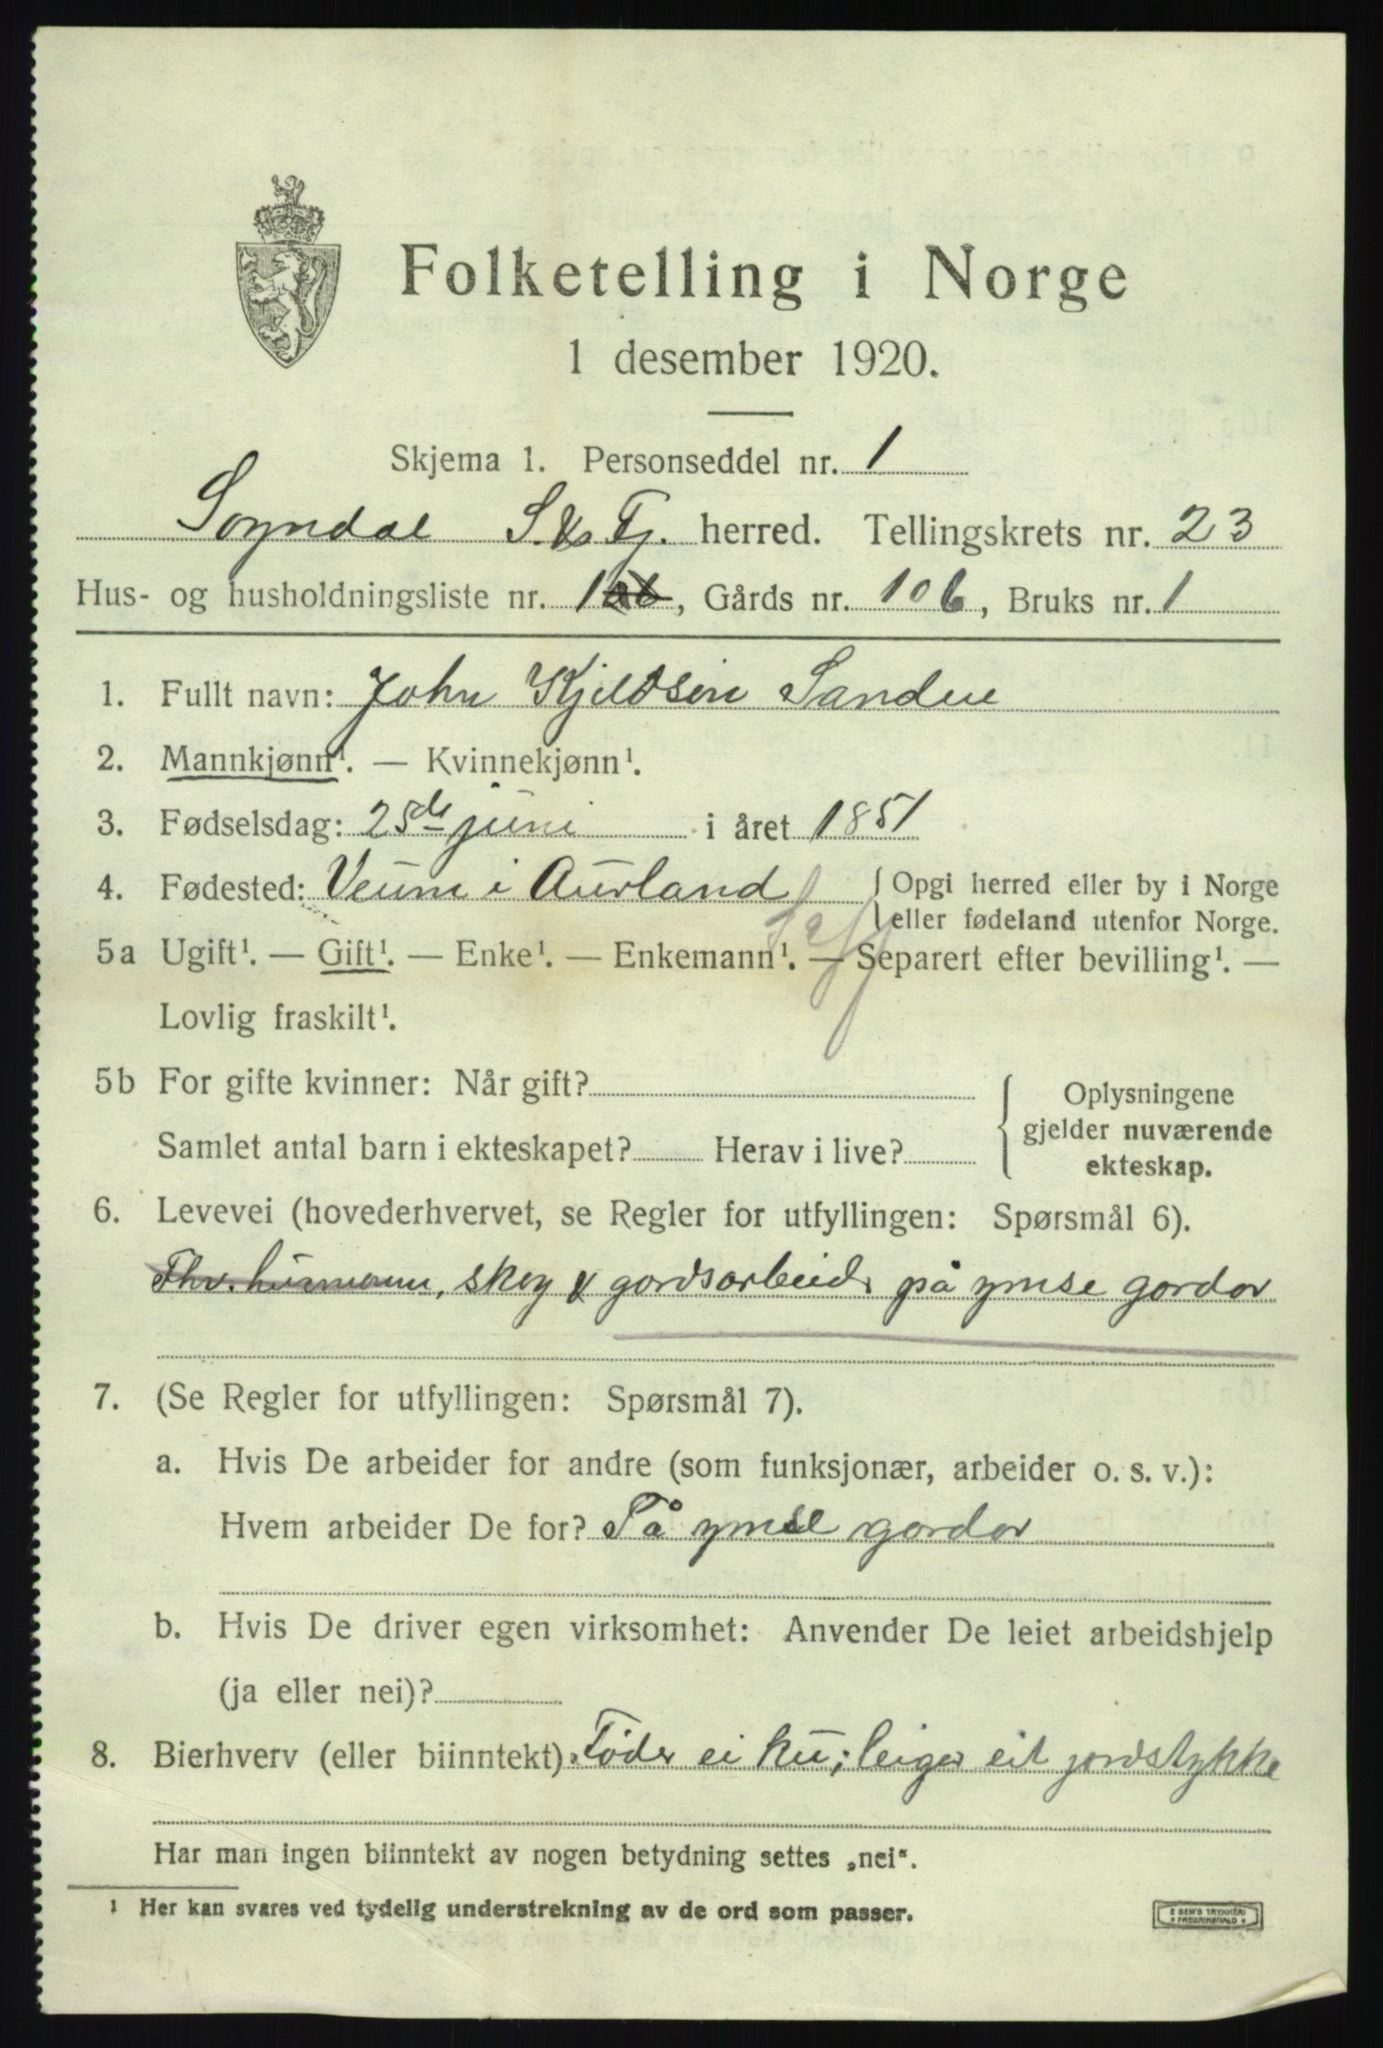 Folketelling i Norge
1 desember 1920.
Skjema 1. Personseddel nr. 1
Sogndal S. & Fj. herred. Tellingskrets nr. 23
Hus- og husholdningsliste nr. 1, Gårds nr. 106, Bruks nr. 1
1. Fullt navn: John Kjeldsen Sandee
2. Mannkjønn¹. — Kvinnekjønn¹.
3. Fødselsdag: 25de juni i året 1851
4. Fødested: Veum i Aurland { Opgi herred eller by i Norge
eller fødeland utenfor Norge.
S & Fj
5a Ugift¹. — Gift¹. — Enke¹. — Enkemann¹. — Separert efter bevilling¹. —
Lovlig fraskilt¹.
5b For gifte kvinner: Når gift?
Samlet antal barn i ekteskapet? Herav i live?
{ Oplysningene
gjelder nuværende
ekteskap.
6. Levevei (hovederhvervet, se Regler for utfyllingen: Spørsmål 6).
Fhv. husmann, skog & gordsarbeider på ymse gordar
7. (Se Regler for utfyllingen: Spørsmål 7).
a. Hvis De arbeider for andre (som funksjonær, arbeider o. s. v.):
Hvem arbeider De for? På ymse gordar
b. Hvis De driver egen virksomhet: Anvender De leiet arbeidshjelp
(ja eller nei)?
8. Bierhverv (eller biinntekt) Föder ei ku; leiger eit jordstykke
Har man ingen biinntekt av nogen betydning settes „nei“.
¹ Her kan svares ved tydelig understrekning av de ord som passer.